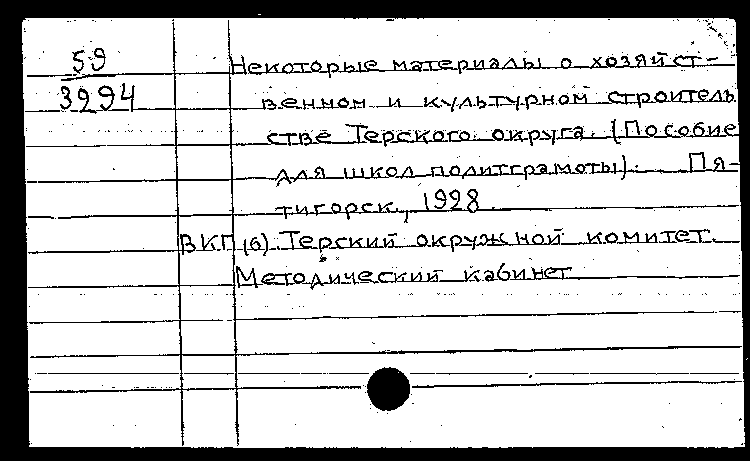 59
3294
Некоторые материалы о хозяйст-
венном и культурном строитель
стве Терского округа. (Пособие
для школ политграмоты). Пя-
тигорск, 1928.
ВКП(б). Терский окружной комитет.
Методический кабинет